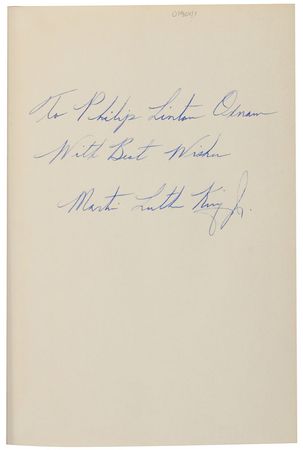 To Philip Linton
With Best Wishes
Martin Luther King Jr.